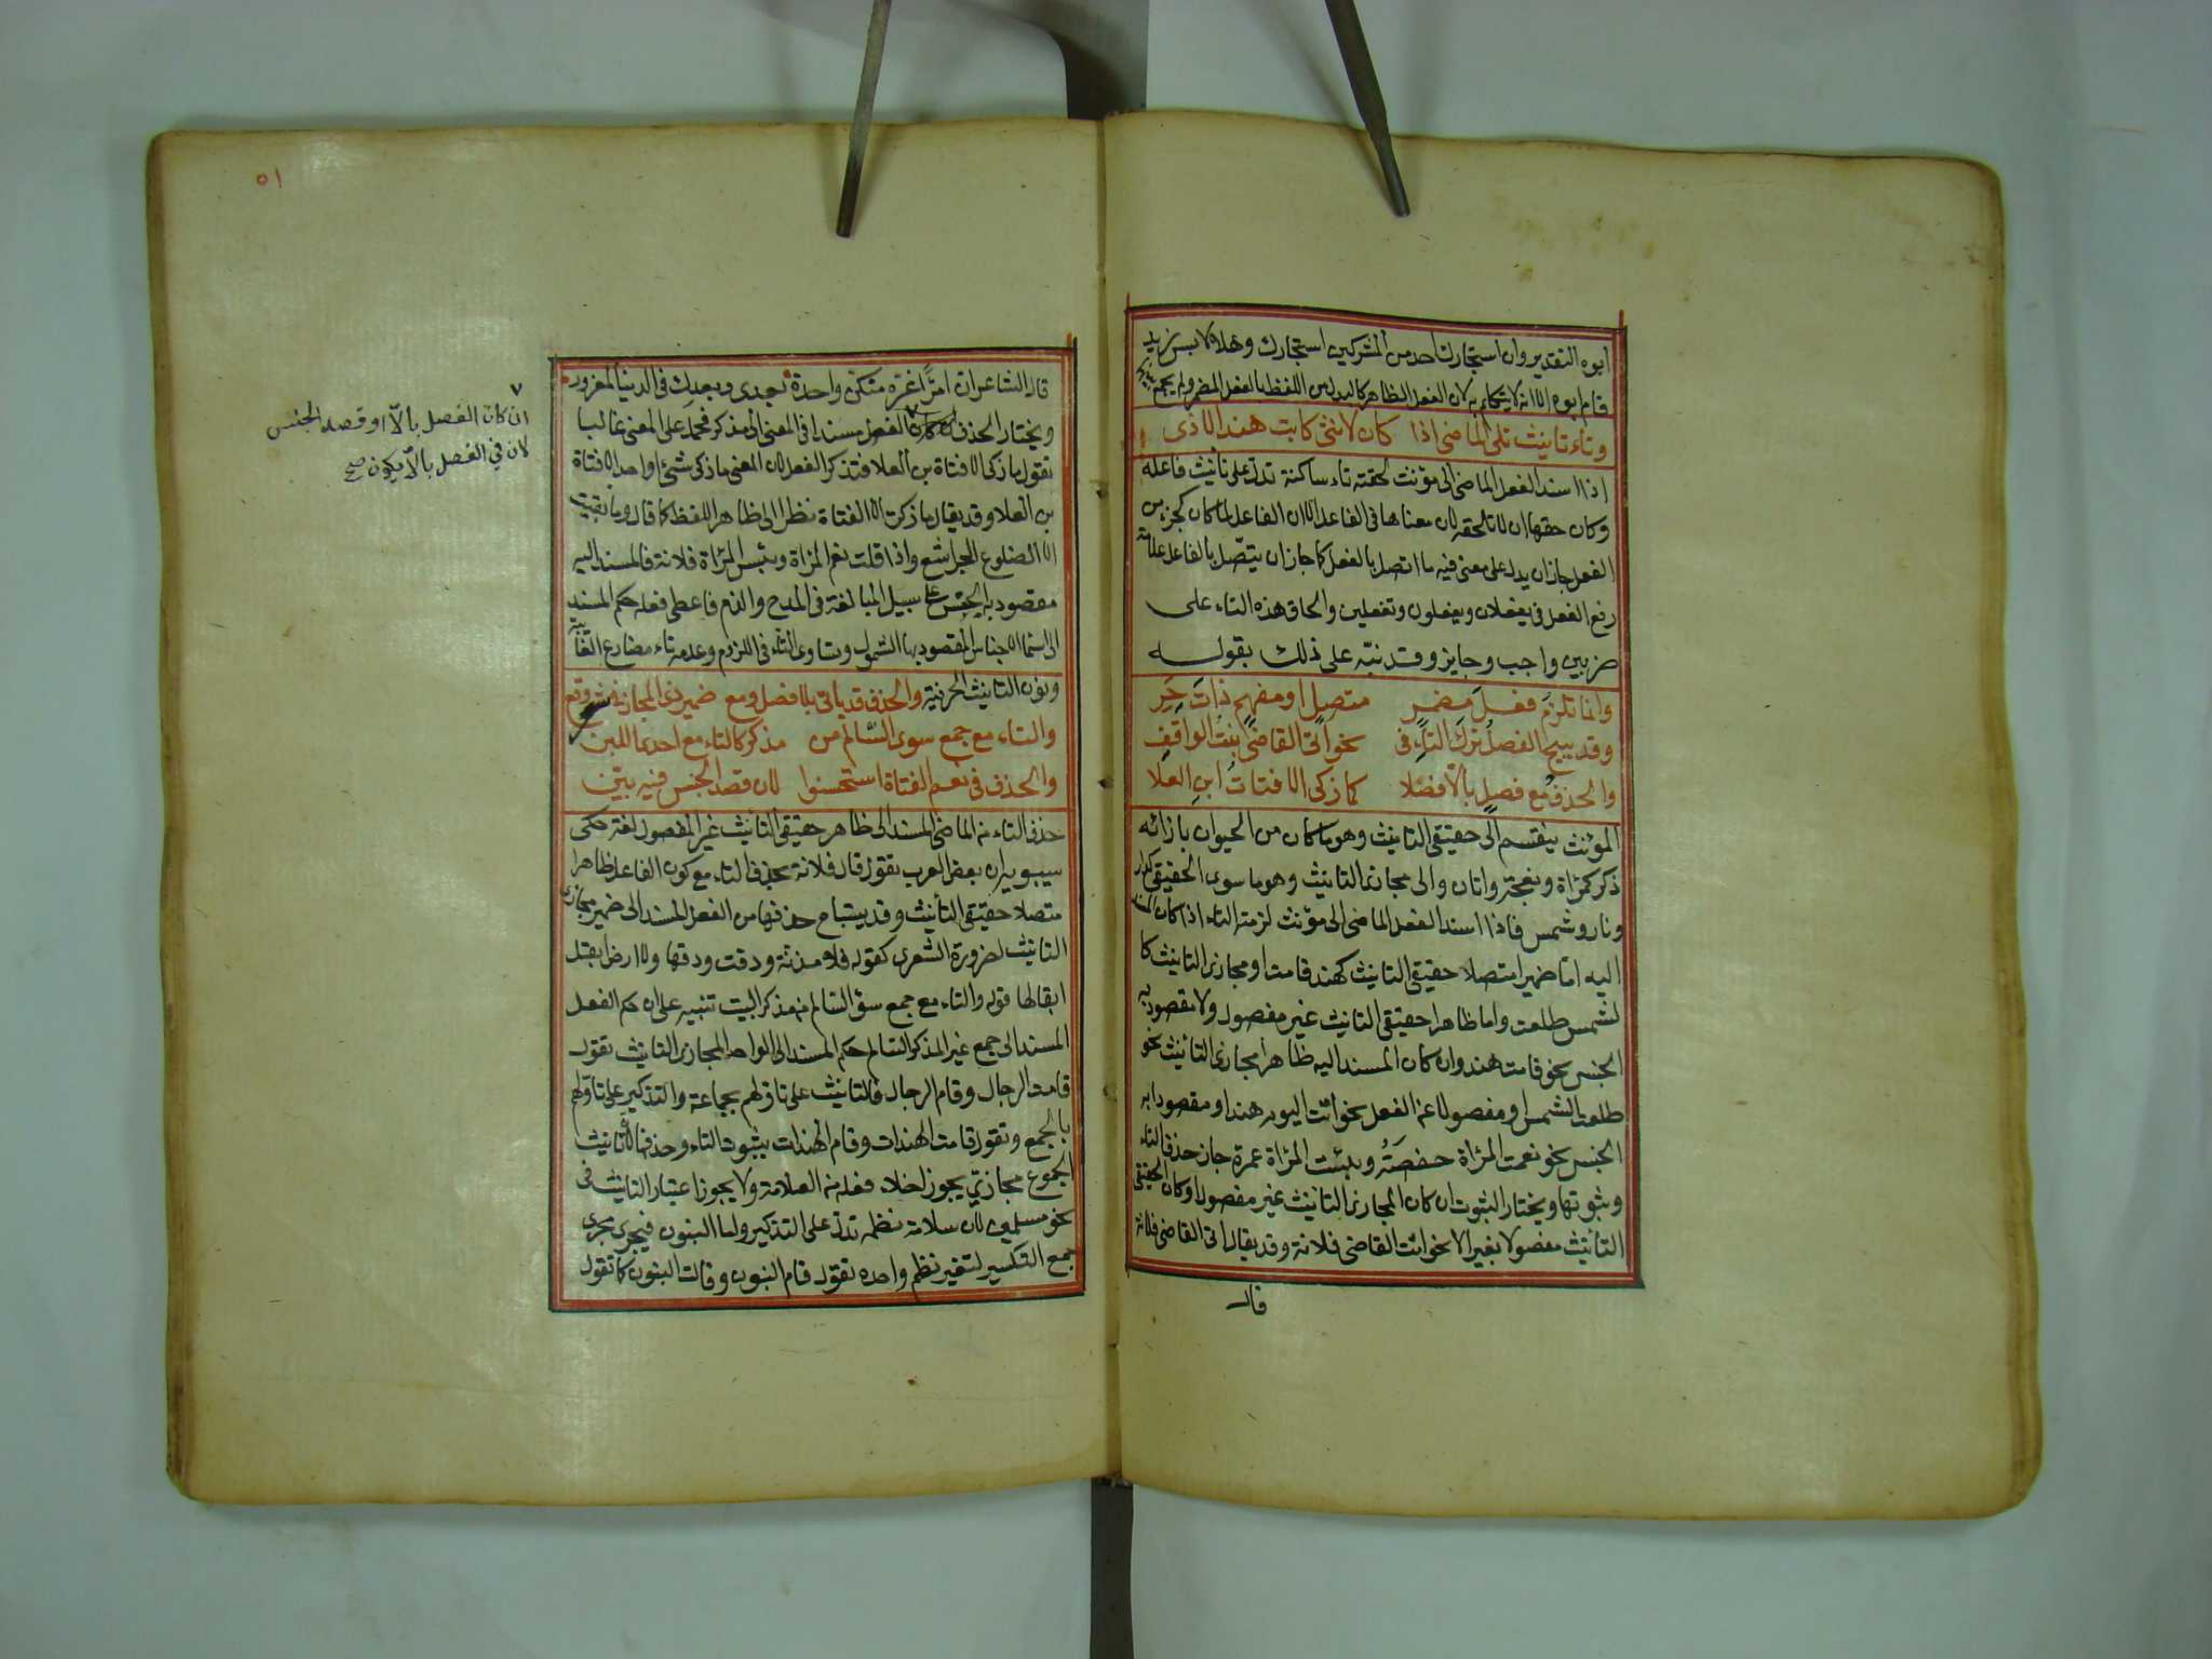 ابوه التقدير وان استجارك احد من المشركين استجارك وهلا لابس زيد
قام ابوه الا انه لا يتكلم به لان الفعل الظاهر كالبدل من اللفظ بالفعل المضمر ولم يجمع بينهما
وتاء تانيث تلي الماضي اذا كان لانثى كابت هند الاذى
اذا اسند الفعل الماضي الى مؤنث لحقته تاء ساكنة تدل على تانيث فاعله
وكان حقها ان لا تلحقه لان معناها في الفاعل الا ان الفاعل لما كان كجزء من
الفعل جاز ان يدل على معنى فيه ما اتصل بالفعل كما جاز ان يتصل بالفاعل علامة
رفع الفعل في يفعلان ويفعلون وتفعلين والحاق هذه التاء على
ضربين واجب وجايز وقد نبه على ذلك بقوله
وانما تلزم فعل مضمر متصل او مفهم ذات حر
وقد يبيح الفصل ترك التاء في نحو اتى القاضي بنت الواقف
والحذف مع فصل بالا فضلا كما زكى الا فتات ابن العلا
المؤنث ينقسم الى حقيقي التانيث وهو ما كان من الحيوان بازائه
ذكر كمراة ونعجة واتان والى مجازي التانيث وهو ما سوى الحقيقي كدار
ونار وشمس فاذا اسند الفعل الماضي الى مؤنث لزمته التاء اذا كان المسند
اليه اما ضميرا متصلا حقيقي التانيث كهند قامت او مجازي التانيث كا
لشمس طلعت واما ظاهرا حقيقي التانيث غير مفصول ولا مقصود به
الجنس نحو قامت هند وان كان المسند اليه ظاهرا مجازي التانيث نحو
طلعت الشمس او مفصولا عن الفعل نحو اتت اليوم هند او مقصودا به
الجنس نحو نعمت المراة حفصة وبئست المراة عمرة جاز حذف التاء
وثبوتها ويختار الثبوت ان كان المجازي التانيث غير مفصول او كان الحقيقي
التانيث مفصولا بغير الا نحو اتت القاضي فلانة وقد يقال اتى القاضي فلانة
قال
٥١
قال الشاعر ان امرًا غره منكن واحدة بعدي وبعدك في الدنيا لمغرور
ويختار الحذف ان كان الفصل مسندا في المعنى الى مذكر فحمل على المعنى غالبا
تقول ما زكى الا فتاة بن العلا فتذكر الفعل لان المعنى ما زكى شئ او احد الا فتاة
بن العلا وقد يقال ما زكت الا الفتاة نظرا الى ظاهر اللفظ كما قال وما بقيت
الا الضلوع الجراشع واذا قلت نعم المراة وبئس المراة فلانة فالمسند اليه
مقصود به الجنس على سبيل المبالغة في المدح والذم فاعطى فعله حكم المسند
الى اسماء الاجناس المقصود بها الشمول وتساوى التاء في اللزوم وعدمه تاء مضارع الغائبة
ونون التانيث الحرفية والحذف قد ياتي بلا فصل ومع ضمير ذي المجاز في شعر وقع
والتاء مع جمع سوى السالم من مذكر كالتاء مع احدى اللبن
والحذف في نعم الفتاة استحسنوا لان قصد الجنس فيه بين
حذف التاء من الماضي المسند الى ظاهر حقيقي التانيث غير المفصول لغة حكى
سيبويه ان بعض العرب يقول قال فلانة بحذف التاء مع كون الفاعل ظاهرا
متصلا حقيقي التأنيث وقد يستباح حذفها من الفعل المسند الى ضمير مجازي
التانيث لضرورة الشعر كقوله فلا مزنة ودقت ودقها ولا ارض ابقل
ابقالها قوله والتاء مع جمع سوى السالم من مذكر البيت تنبيه على ان حكم الفعل
المسند الى جمع غير المذكر السالم حكم المسند الى الواحد المجازي التانيث تقول
قامت الرجال وقام الرجال فالتانيث على تاولهم بجماعة والتذكير على تاولهم
بالجمع وتقول قامت الهندات وقام الهندات بثبوت التاء وحذفها لان تانيث
الجموع مجازي يجوز اخلاء فعله من العلامة ولا يجوز اعتبار التانيث في
نحو مسلمين لان سلامة نظمه تدل على التذكير واما البنون فيجرى مجرى
جمع التكسير لتغير نظم واحده تقول قام البنون وقالت البنون كما تقول
ان كان الفصل بالا او قصد الجنس
لان في الفصل بالا يكون صح